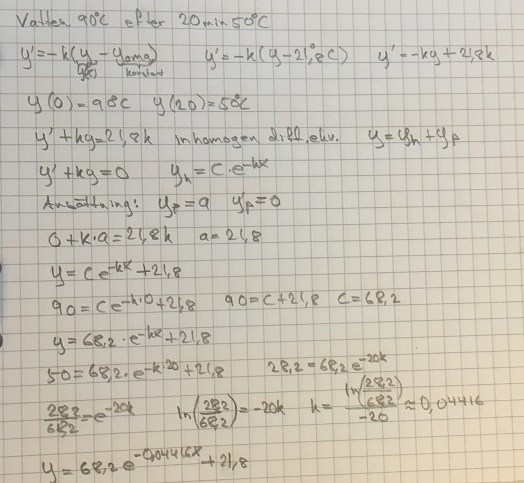 Vatten 90°C efter 20min 50°C
y'=-k(y-yomg) y'=-k(y-21,8°C) y'=-ky+21,8k
y(x) konstant
y(0)=90°C y(20)=50°C
y'+ky=21,8k inhomogen diff.ekv. y=yh+yp
y'+ky=0 yh=C·e^-kx
Ansättning: yp=a y'p=0
0+k·a=21,8k a=21,8
y=Ce^-kx+21,8
90=Ce^-k·0+21,8 90=C+21,8 C=68,2
y=68,2·e^-kx+21,8
50=68,2·e^-k·20+21,8 28,2=68,2e^-20k
28,2/68,2=e^-20k ln(28,2/68,2)=-20k k=ln(28,2/68,2)/-20≈0,04416
y=68,2e^-0,04416x+21,8